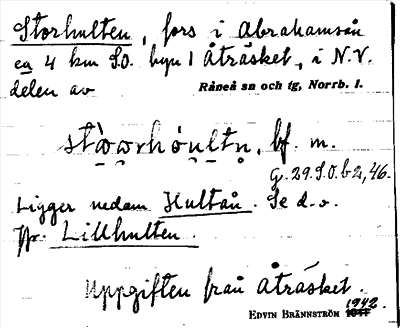 Storhulten, fors i Abrahamsån
ca 4 km S.O. byn 1 Åträsket, i N.V.
delen av
Råneå sn och tg, Norrb. l.
stòωrhóultn̥, bf. m.
G. 29. S.O. b 2, 46.
Ligger nedom Hultån. Se d.o.
Jfr. Lillhulten.
Uppgiften från Åträsket.
1942.
EDVIN BRÄNNSTRÖM